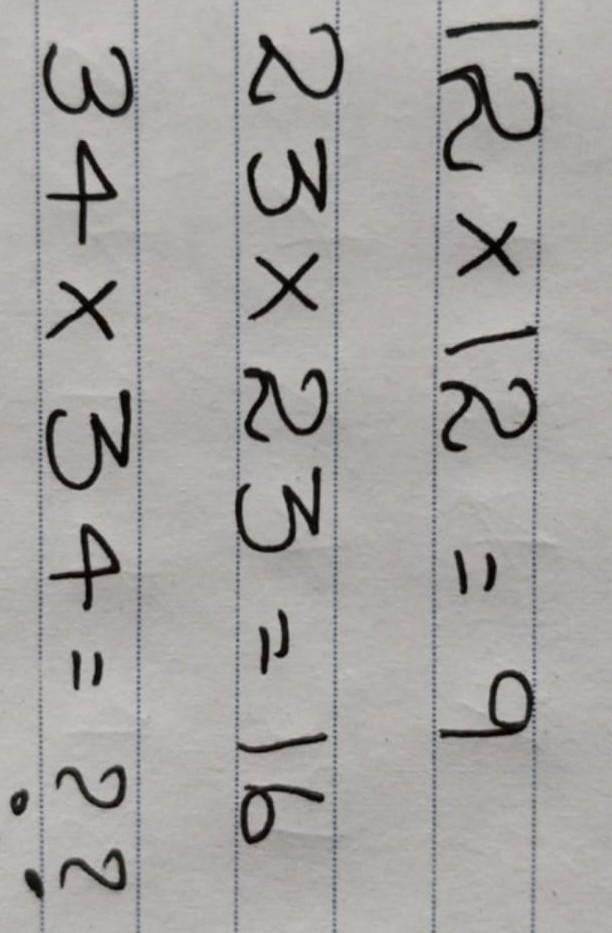 12 x 12 = 9
23 x 23 = 16
34 x 34 = ??